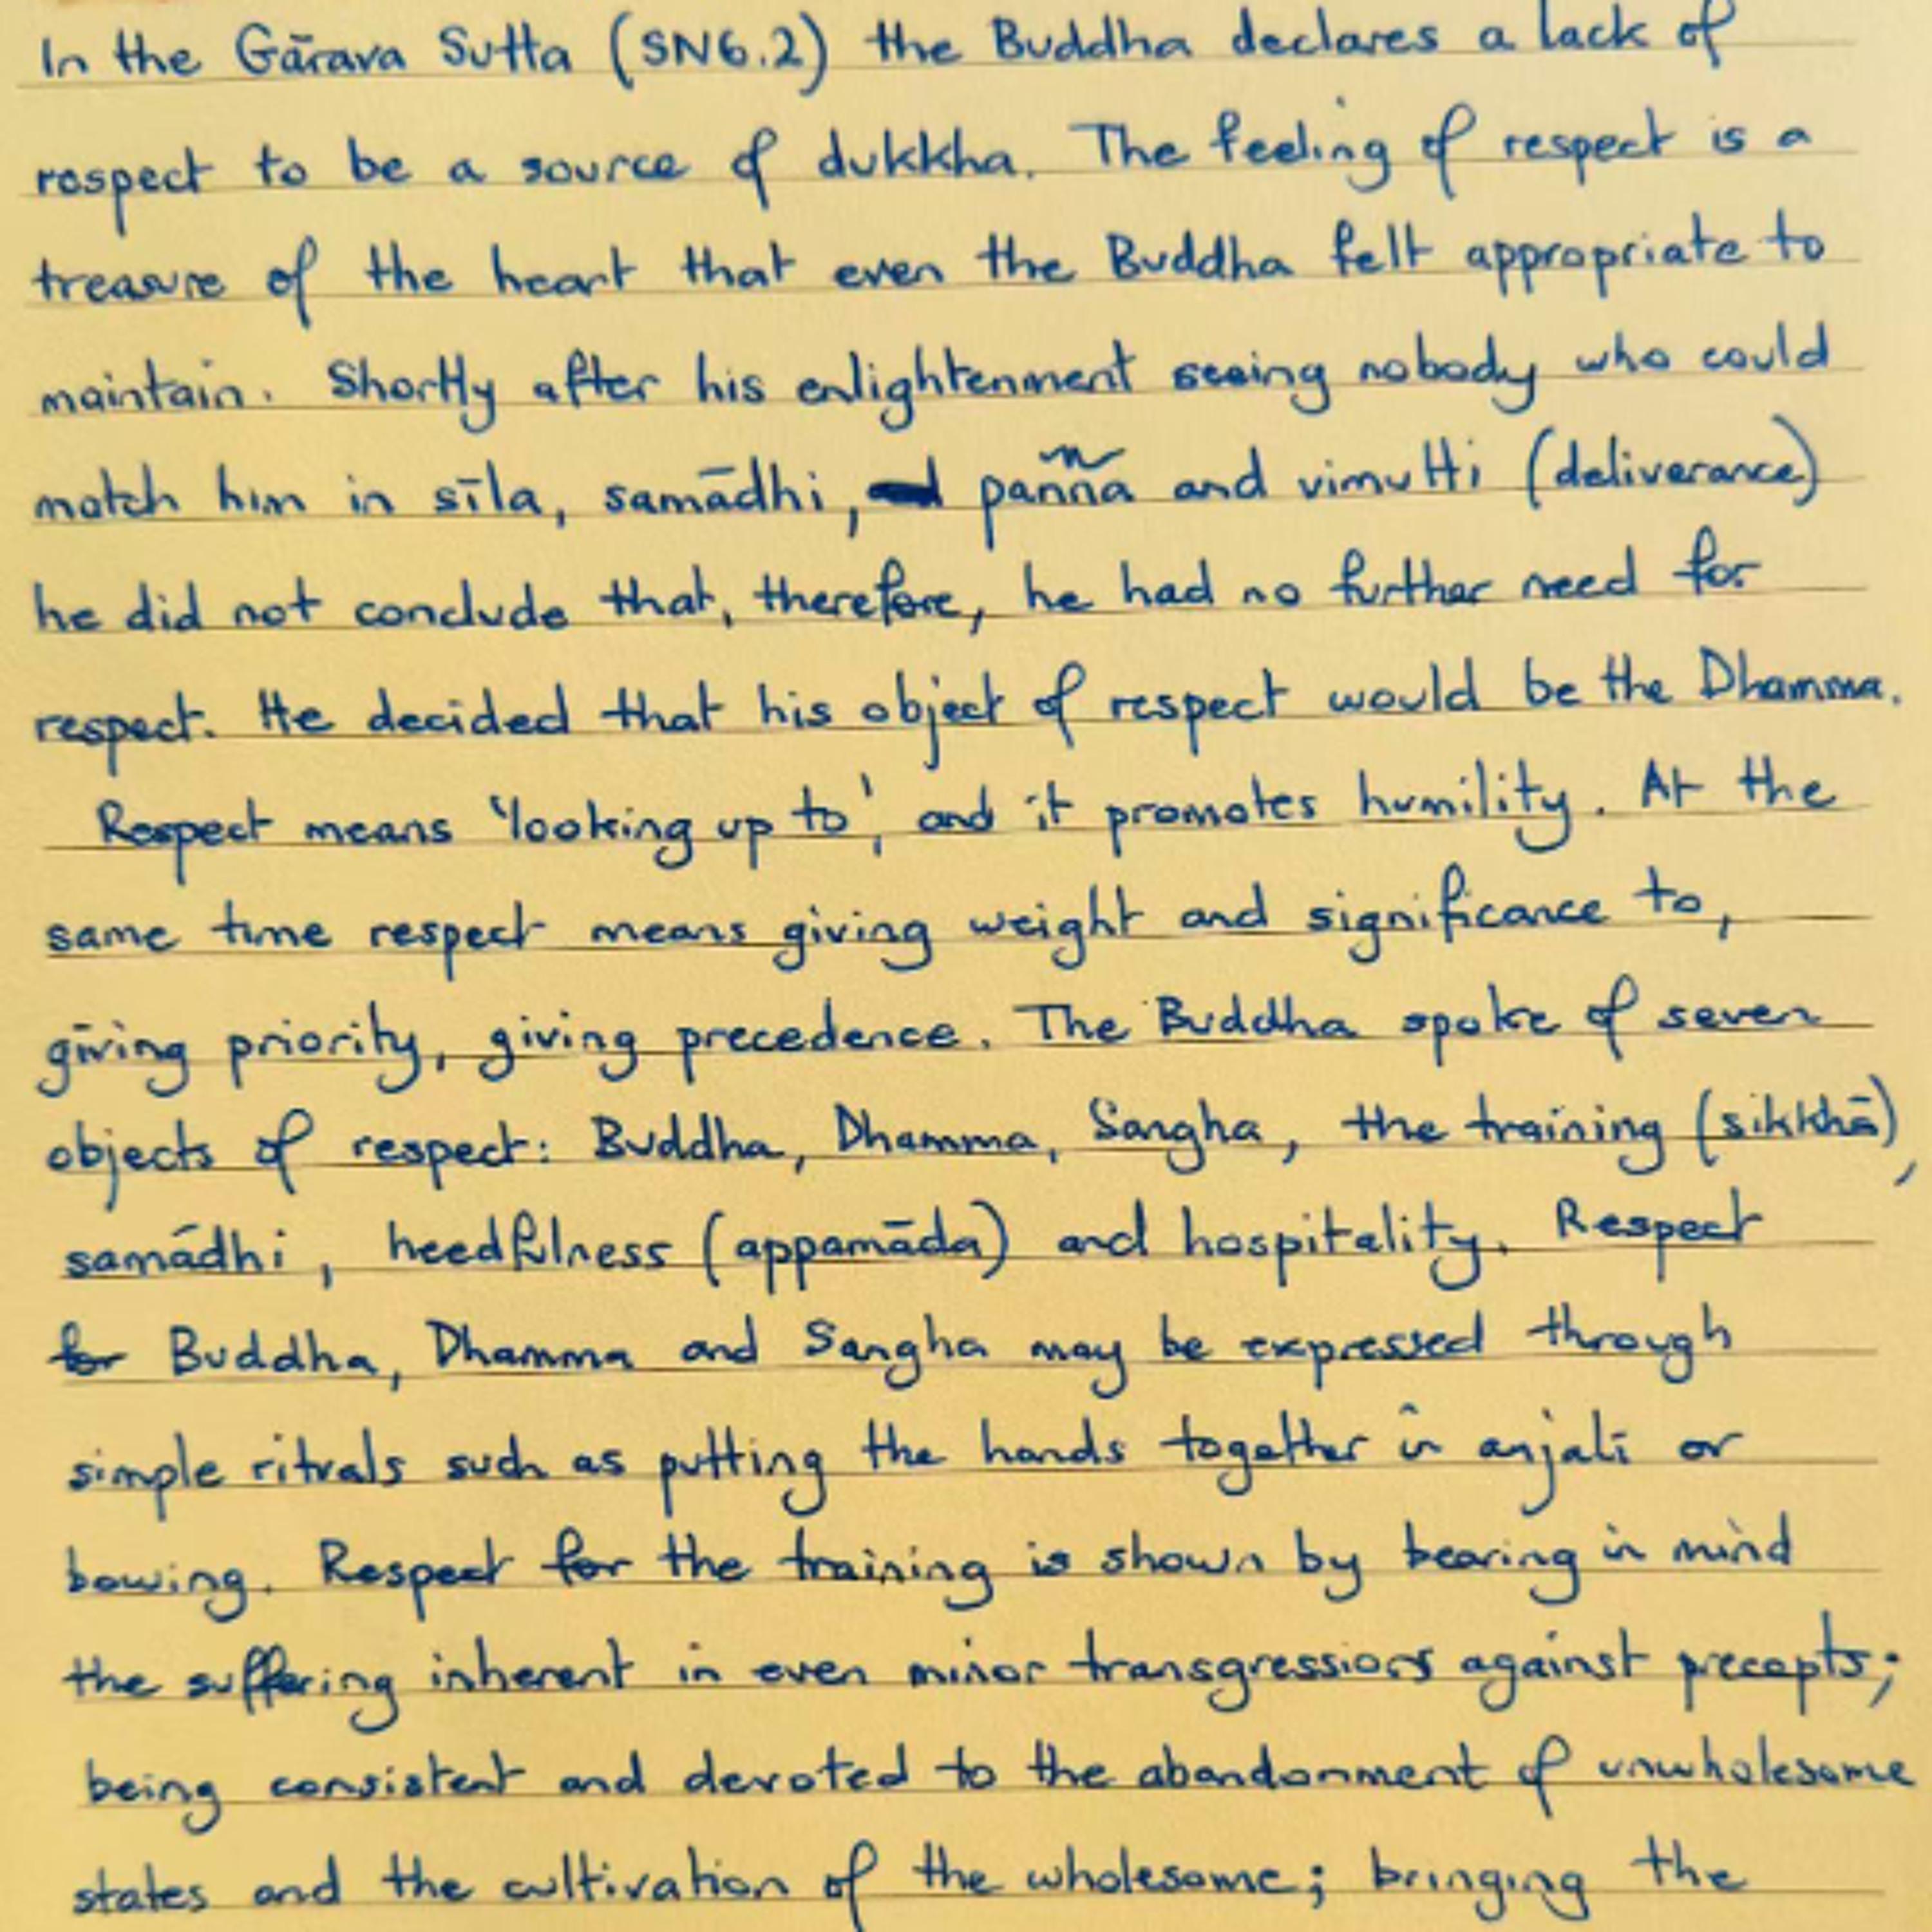 In the Gārava Sutta (SN6.2) the Buddha declares a lack of
respect to be a source of dukkha. The feeling of respect is a
treasure of the heart that even the Buddha felt appropriate to
maintain. Shortly after his enlightenment seeing nobody who could
match him in sīla, samādhi, pañña and vimutti (deliverance)
he did not conclude that, therefore, he had no further need for
respect. He decided that his object of respect would be the Dhamma.
Respect means 'looking up to', and it promotes humility. At the
same time respect means giving weight and significance to,
giving priority, giving precedence. The Buddha spoke of seven
objects of respect: Buddha, Dhamma, Sangha, the training (sikkhā),
samādhi, heedfulness (appamāda) and hospitality. Respect
for Buddha, Dhamma and Sangha may be expressed through
simple rituals such as putting the hands together in anjali or
bowing. Respect for the training is shown by bearing in mind
the suffering inherent in even minor transgressions against precepts;
being consistent and devoted to the abandonment of unwholesome
states and the cultivation of the wholesome; bringing the